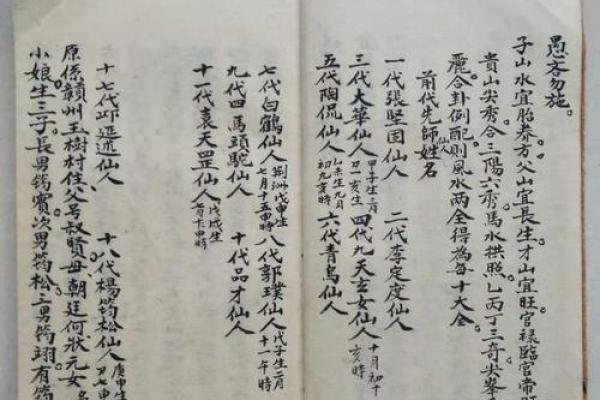 愚吝勿施。
子山水宜胎養方父山宜長生才山宜旺官祿臨官帝旺
貴山尖秀合三陽六秀馬水拱照乙丙丁三奇尖峯
麗合卦例配則風水兩全得為每十大全。
前代先師仙姓名
一代張堅固仙人 二代李定度仙人
三代大華仙人甲子生三月刀一亥生 四代九天玄女仙人十月初十亥時
五代陶侃仙人乙未生九月初九亥時 六代青烏仙人
七代白鶴仙人荆洲戊申生七月十五申時 八代郭璞仙人戊子生二月十一午時
九代四馬頭駝仙人 十代品才仙人
十一代袁天罡仙人戊戌生
十七代邱延述仙人 十八代楊筠松仙人庚申生
原係贛州玉樹村住父号叔賢母朝廷何狀元女
小娘生三子長男筠賓次男筠松三男筠翊有筠